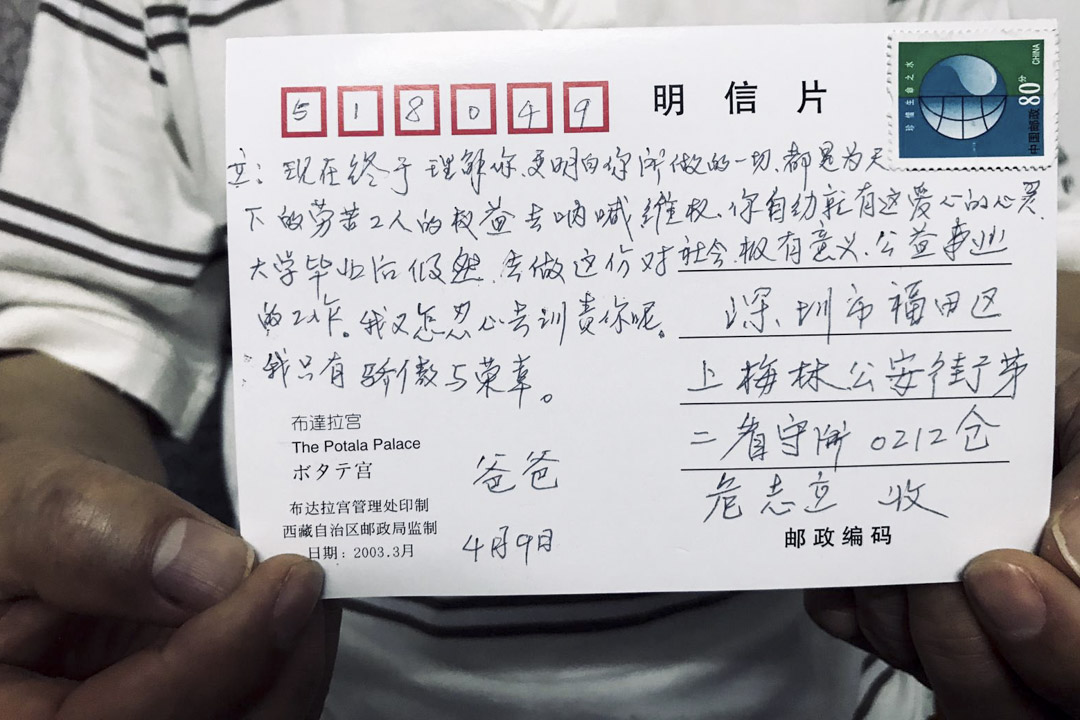 518049
明信片
珍惜生命之水
中国邮政 80分
CHINA
立：现在终于理解你、更明白你所做的一切、都是为天
下的劳苦工人的权益去呐喊维权、你自幼就有这爱心的心灵、
大学毕业后 毅然 去做这份对社会极有意义、公益事业
的工作。我又怎忍心去训责你呢。
我只有骄傲与荣幸。
爸爸
4月9日
深圳市福田区
上梅林公安街了第
二看守所 0212仓
危志立 收
邮政编码
布達拉宫
The Potala Palace
ポタテ宫
布达拉宫管理处印制
西藏自治区邮政局监制
日期：2003.3月